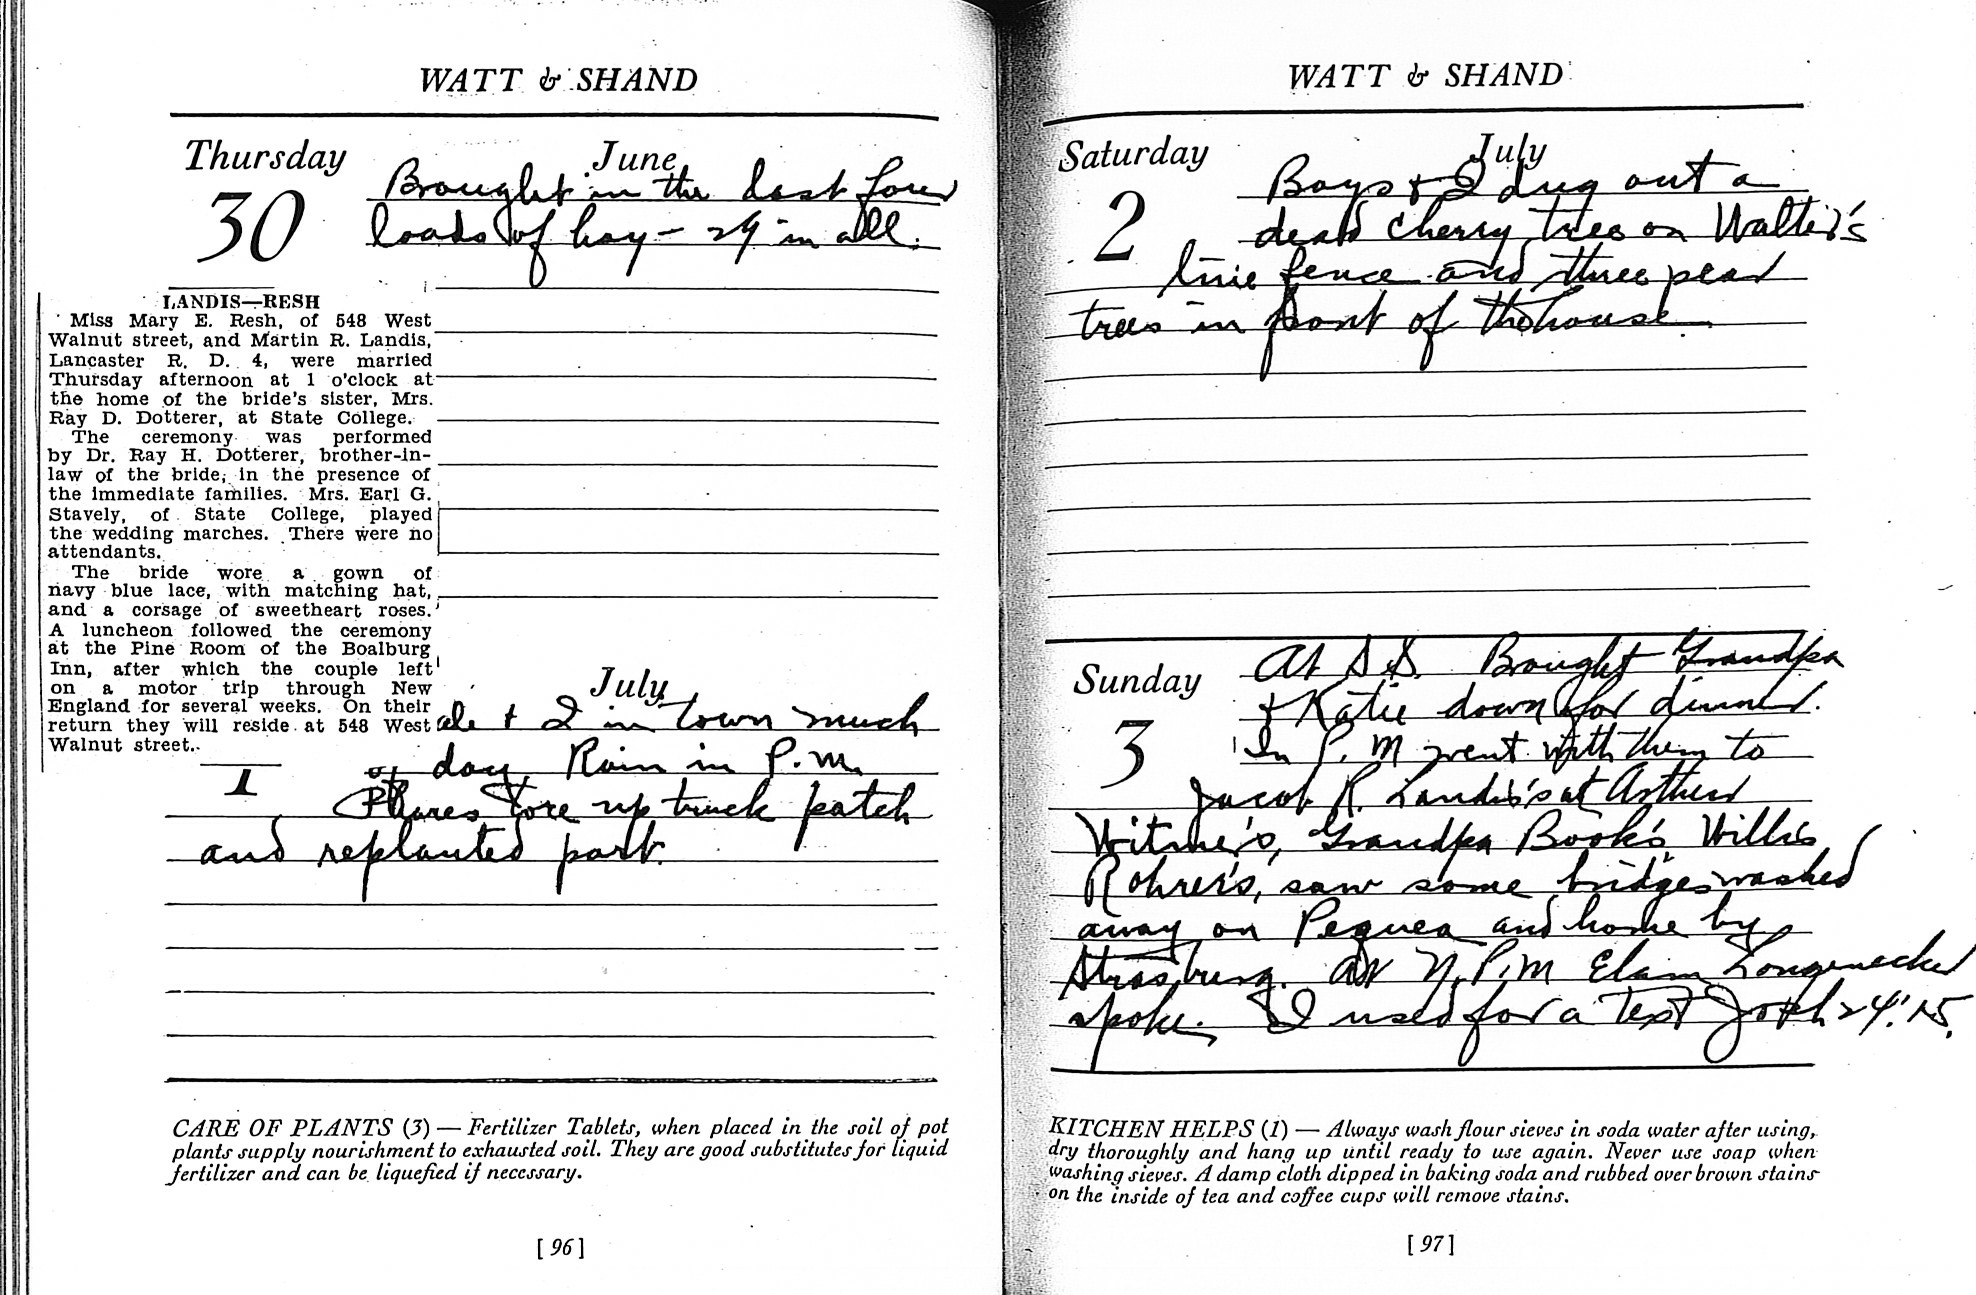 WATT & SHAND
Thursday June
30
Brought in the last four
loads of hay – 24 in all.
LANDIS—RESH
Miss Mary E. Resh, of 548 West
Walnut street, and Martin R. Landis,
Lancaster R. D. 4, were married
Thursday afternoon at 1 o'clock at
the home of the bride's sister, Mrs.
Ray D. Dotterer, at State College.
The ceremony was performed
by Dr. Ray H. Dotterer, brother-in-
law of the bride, in the presence of
the immediate families. Mrs. Earl G.
Stavely, of State College, played
the wedding marches. There were no
attendants.
The bride wore a gown of
navy blue lace, with matching hat,
and a corsage of sweetheart roses.
A luncheon followed the ceremony
at the Pine Room of the Boalburg
Inn, after which the couple left
on a motor trip through New
England for several weeks. On their
return they will reside at 548 West
Walnut street.
July
1
& I in town much
of day. Rain in P.M.
tore up truck patch
and replanted part.
CARE OF PLANTS (3) — Fertilizer Tablets, when placed in the soil of pot
plants supply nourishment to exhausted soil. They are good substitutes for liquid
fertilizer and can be liquefied if necessary.
[ 96 ]
WATT & SHAND
Saturday July
2
Boys & I dug out a
dead cherry tree on Walter's
line fence and three pear
trees in front of the house.
Sunday
3
At S.S. Brought Grandpa
& Katie down for dinner.
In P.M went with them to
Jacob R. Landis's at Arthur
Witmer's, Grandpa Book's, Willis
Rohrer's, saw some bridges washed
away on Pequea and home by
Strasburg. At Y.P.M Elam Longenecker
spoke. I used for a text Josh 24:15.
KITCHEN HELPS (1) — Always wash flour sieves in soda water after using,
dry thoroughly and hang up until ready to use again. Never use soap when
washing sieves. A damp cloth dipped in baking soda and rubbed over brown stains
on the inside of tea and coffee cups will remove stains.
[ 97 ]